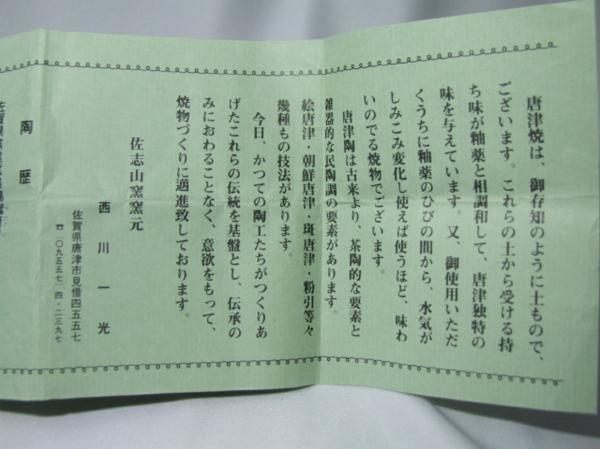 唐津焼は、御存知のように土もので、
ございます。これらの土から受ける持
ち味が釉薬と相調和して、唐津独特の
味を与えています。又、御使用いただ
くうちに釉薬のひびの間から、水気が
しみこみ変化し使えば使うほど、味わ
いのでる焼物でございます。
唐津陶は古来より、茶陶的な要素と
雑器的な民陶調の要素があります。
絵唐津・朝鮮唐津・斑唐津・粉引等々
幾種もの技法があります。
今日、かつての陶工たちがつくりあ
げたこれらの伝統を基盤とし、伝承の
みにおわることなく、意欲をもって、
焼物づくりに邁進致しております。
佐志山窯窯元
西川一光
佐賀県唐津市見借四五五七
☎〇九五五七(四)二三九七
陶歴